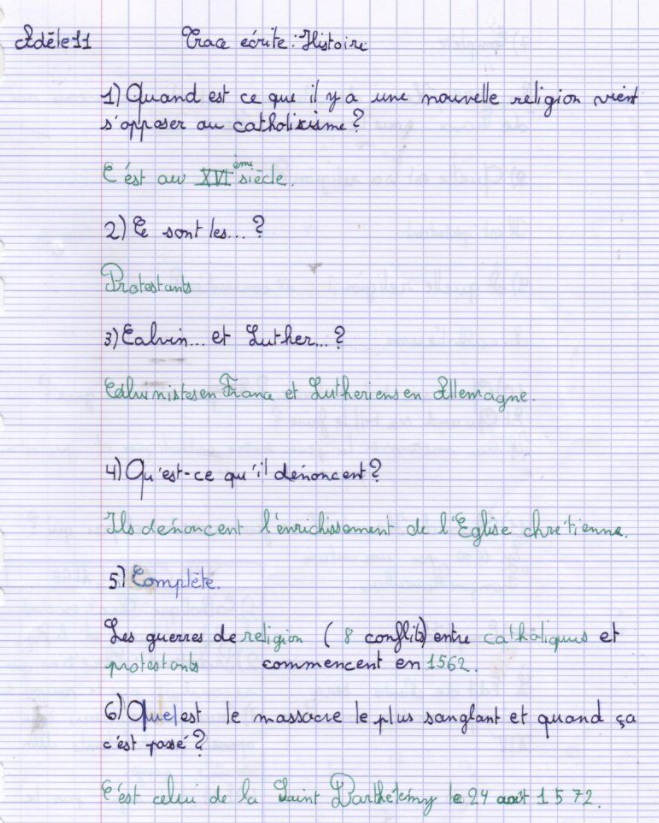 Adèle 11 Trace écrite : Histoire
1) Quand est ce que il y a une nouvelle religion vient
s'opposer au catholicisime ?
C'est au XVI ème siècle.
2) Ce sont les... ?
Protestants
3) Calvin... et Luther... ?
Calvinistes en France et Lutheriens en Allemagne.
4) Qu'est-ce qu'il dénoncent ?
Ils dénoncent l'enrichissement de l'Eglise chrétienne.
5) Complète.
Les guerres de religion ( 8 conflits) entre catholiques et
protestants commencent en 1562.
6) Quel est le massacre le plus sanglant et quand ça
c'est passé ?
C'est celui de la Saint Barthélémy le 24 août 1572.